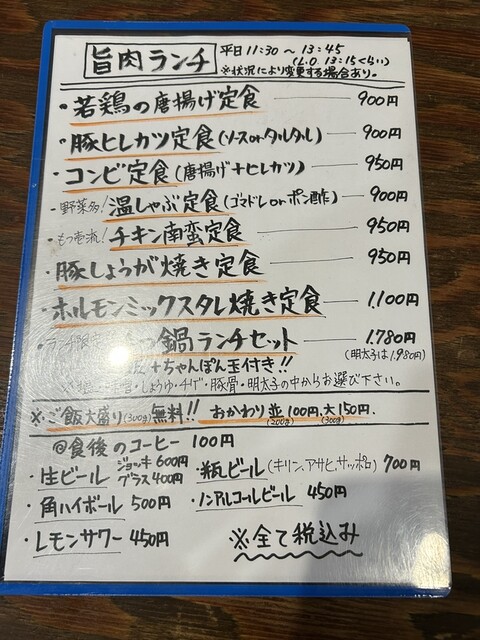 旨肉ランチ 平日11:30〜13:45
(L.O.13:15くらい)
※状況により変更する場合あり。
・若鶏の唐揚げ定食 900円
・豚ヒレカツ定食(ソースorタルタル) 900円
・コンビ定食(唐揚げ+ヒレカツ) 950円
・野菜多!温しゃぶ定食(ゴマドレorポン酢) 900円
・もつ壱流!チキン南蛮定食 950円
・豚しょうが焼き定食 950円
・ホルモンミックスタレ焼き定食 1,100円
・ランチ限定 もつ鍋ランチセット 1.780円
(明太子は1.980円)
ちゃんぽん玉付き!!
・しょうゆ・チゲ・豚骨・明太子の中からお選び下さい。
※ご飯大盛り(300g)無料!! おかわり並100円、大150円.
(200g) (300g)
@食後のコーヒー 100円
・生ビール ジョッキ600円 グラス400円
・瓶ビール(キリン、アサヒ、サッポロ) 700円
・角ハイボール 500円
・ノンアルコールビール 450円
・レモンサワー 450円
※全て税込み